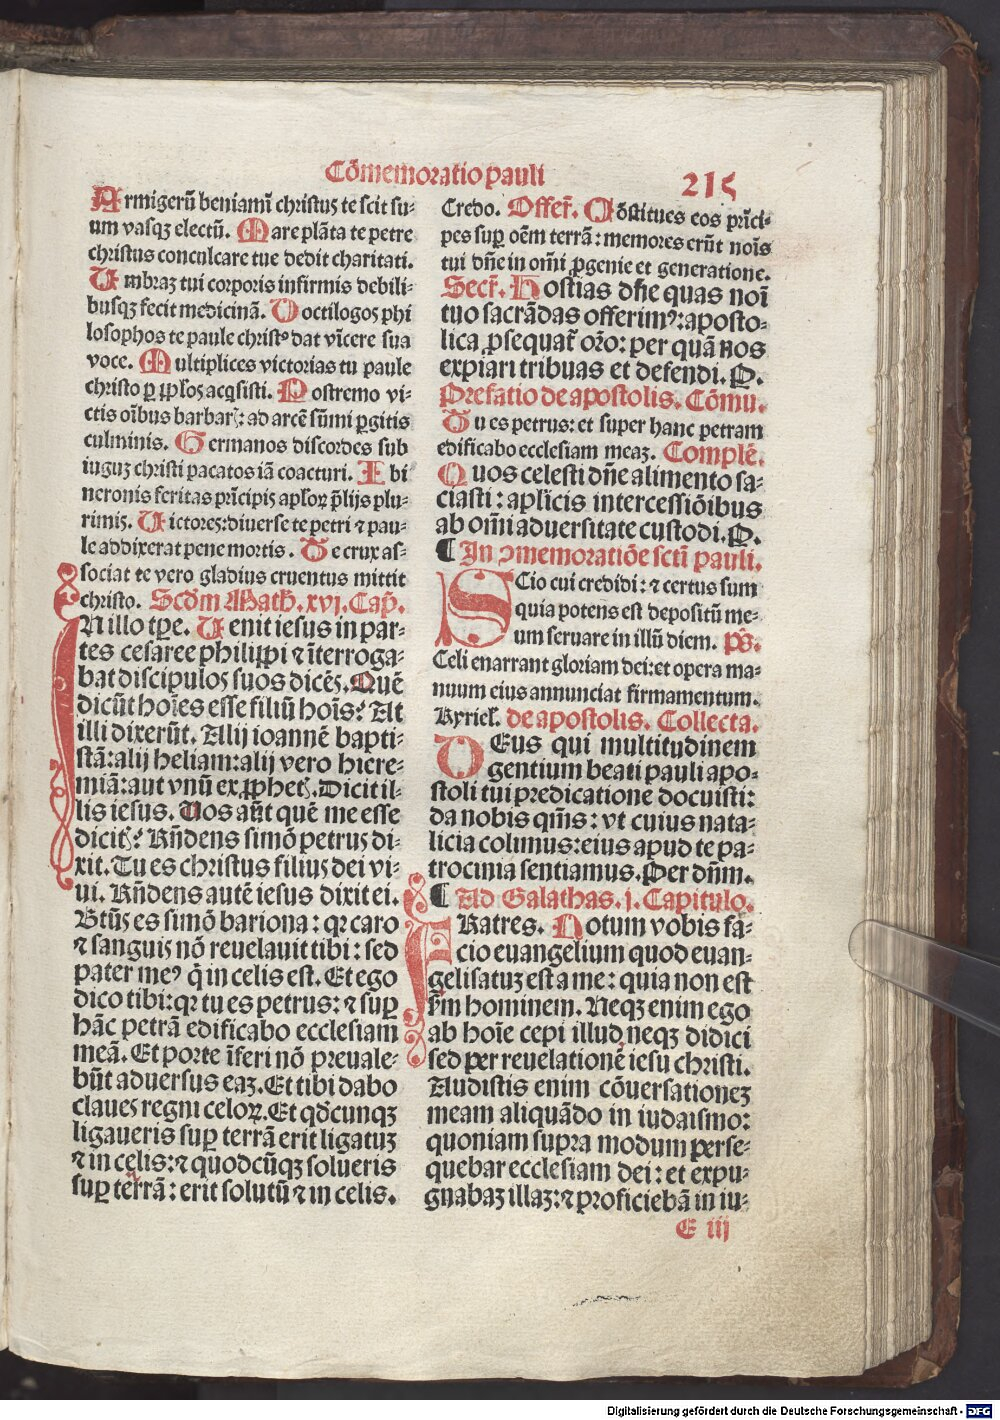 Cōmemoratio pauli
215
Armigerū beniamī christus te scit su-
um vasqꝫ electū. Mare plāta te petre
christus conculcare tue dedit charitati.
Umbraꝫ tui corporis infirmis debili-
busqꝫ fecit medicinā. Doctilogos phi
losophos te paule christꝰ dat vīcere sua
voce. Multiplices victorias tu paule
christo ꝑ ꝓplos acqsisti. Postremo vi-
ctis oībus barbarꝭ: ad arcē sūmi ꝑgitis
culminis. Germanos discordes sub
iuguꝫ christi pacatos iā coacturi. Ibi
neronis feritas prīcipis aplorꝝ p̄lijs plu-
rimis. Uictores: diuerse te petri ⁊ pau-
le addixerat pene mortis. Te crux as-
sociat te vero gladius cruentus mittit
christo. Scd̄m Math. xvi. Cap̄.
IN illo tꝑe. Uenit iesus in par-
tes cesaree philippi ⁊ īterroga-
bat discipulos suos dicēs. Quē
dicūt hoīes esse filiū hoīs? At
illi dixerūt. Alij ioannē bapti-
stā: alij heliam: alij vero hiere-
miā: aut vnū ex ꝓphetꝭ. Dicit il-
lis iesus. Uos aūt quē me esse
dicitꝭ? Rn̄dens simō petrus di-
xit. Tu es christus filius dei vi-
ui. Rn̄dens autē iesus dixit ei.
Btūs es simō bariona: qꝛ caro
⁊ sanguis nō reuelauit tibi: sed
pater meꝰ q̄ in celis est. Et ego
dico tibi: qꝛ tu es petrus: ⁊ suꝑ
hāc petrā edificabo ecclesiam
meā. Et porte īferi nō preuale-
būt aduersus eaꝫ. Et tibi dabo
claues regni celoꝝ. Et qd̄cunqꝫ
ligaueris suꝑ terrā erit ligatuꝫ
⁊ in celis: ⁊ quodcūqꝫ solueris
suꝑ terrā: erit solutū ⁊ in celis.
Credo. Offer̄. Cōstitues eos prīci-
pes suꝑ oēm terrā: memores erūt noīs
tui dn̄e in om̄i ꝓgenie et generatione.
Secr̄. Hostias dn̄e quas noī
tuo sacrādas offerimꝰ: aposto-
lica ꝓsequat̄ oro: per quā nos
expiari tribuas et defendi. P.
Prefatio de apostolis. Cōmu.
Tu es petrus: et super hanc petram
edificabo ecclesiam meaꝫ. Complē.
Quos celesti dn̄e alimento sa-
ciasti: aplicis intercessiōibus
ab om̄i aduersitate custodi. P.
¶ In ꝯmemoratiōe scti pauli.
SCio cui credidi: ⁊ certus sum
quia potens est depositū me-
um seruare in illū diem. pS.
Celi enarrant gloriam dei: et opera ma-
nuum eius annunciat firmamentum.
Kyriel̄. de apostolis. Collecta.
DEus qui multitudinem
gentium beati pauli apo-
stoli tui predicatione docuisti:
da nobis qm̄s: vt cuius nata-
licia colimus: eius apud te pa-
trocinia sentiamus. Per dn̄m.
¶ Ad Galathas. j. Capitulo.
FRatres. Notum vobis fa-
cio euangelium quod euan-
gelisatuꝫ est a me: quia non est
s̄m hominem. Neqꝫ enim ego
ab hoīe cepi illud neqꝫ didici
sed per reuelationē iesu christi.
Audistis enim cōuersationeꝫ
meam aliquādo in iudaismo:
quoniam supra modum perse-
quebar ecclesiam dei: et expu-
gnabaꝫ illaꝫ: ⁊ proficiebā in iu-
E iij
Digitalisierung gefördert durch die Deutsche Forschungsgemeinschaft - DFG